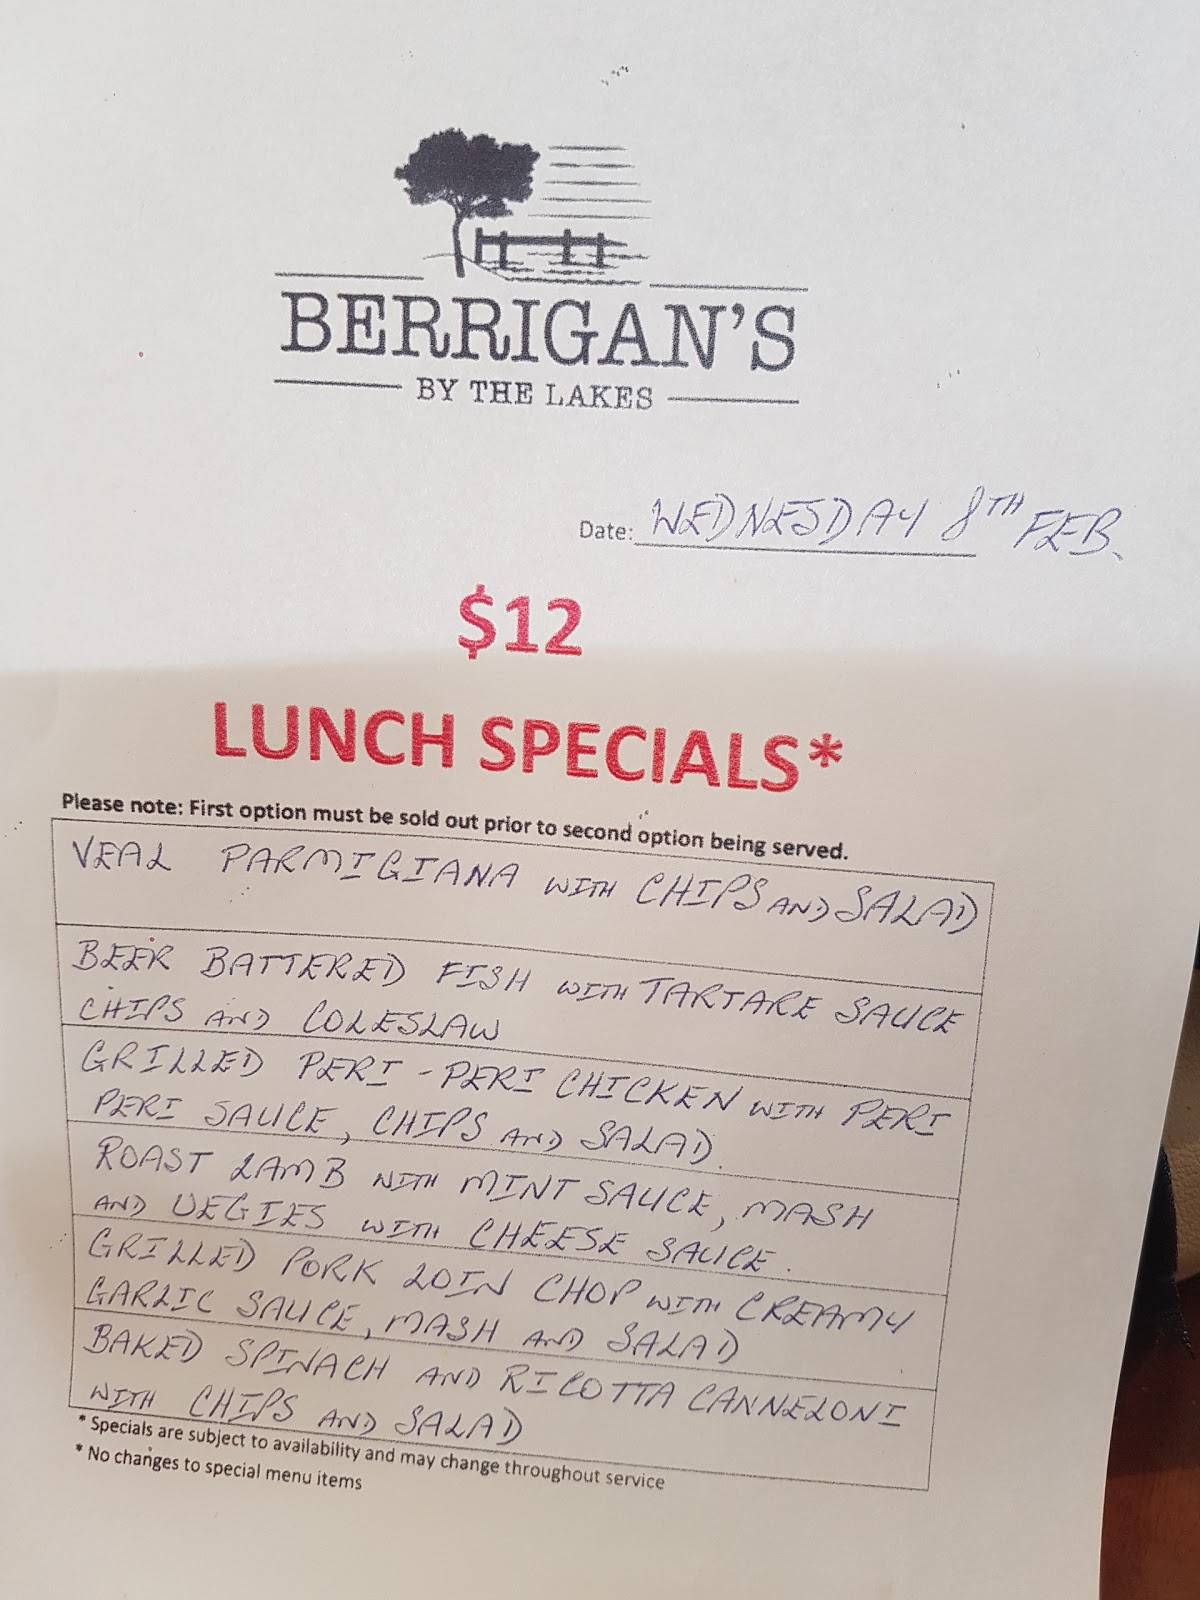 BERRIGAN'S
BY THE LAKES
Date: WEDNESDAY 8TH FEB.
$12
LUNCH SPECIALS*
Please note: First option must be sold out prior to second option being served.
VEAL PARMIGIANA WITH CHIPS AND SALAD
BEER BATTERED FISH WITH TARTARE SAUCE
CHIPS AND COLESLAW
GRILLED PERI-PERI CHICKEN WITH PERI
PERI SAUCE, CHIPS AND SALAD.
ROAST LAMB WITH MINT SAUCE, MASH
AND VEGIES WITH CHEESE SAUCE.
GRILLED PORK LOIN CHOP WITH CREAMY
GARLIC SAUCE, MASH AND SALAD
BAKED SPINACH AND RICOTTA CANNELONI
WITH CHIPS AND SALAD
* Specials are subject to availability and may change throughout service
* No changes to special menu items